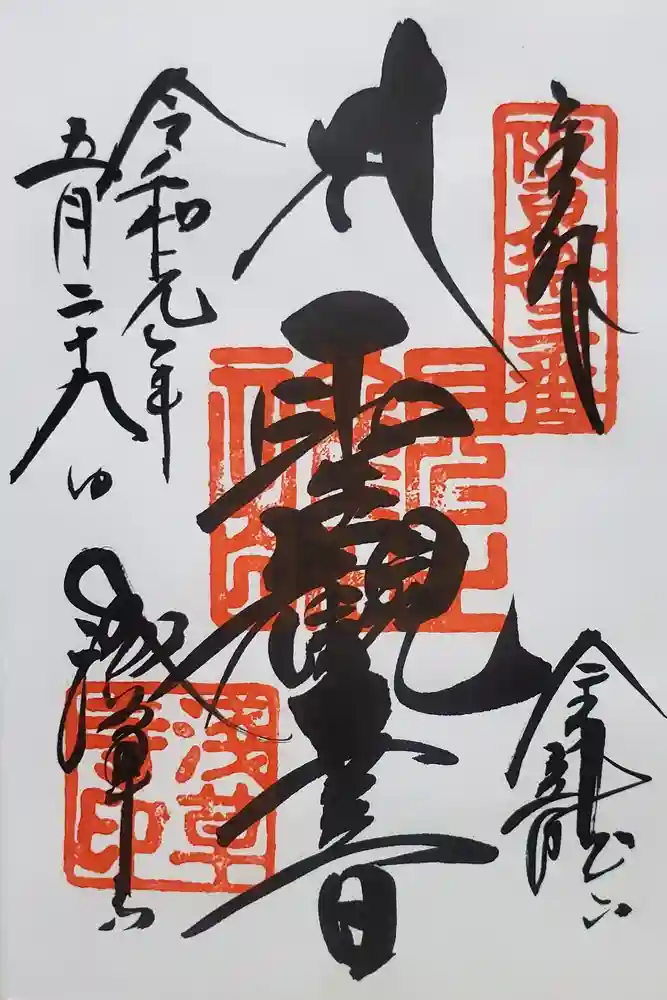 奉拝
阪東拾三番
聖観世音
金龍山
浅草寺
浅草寺印
令和元年
五月二十九日